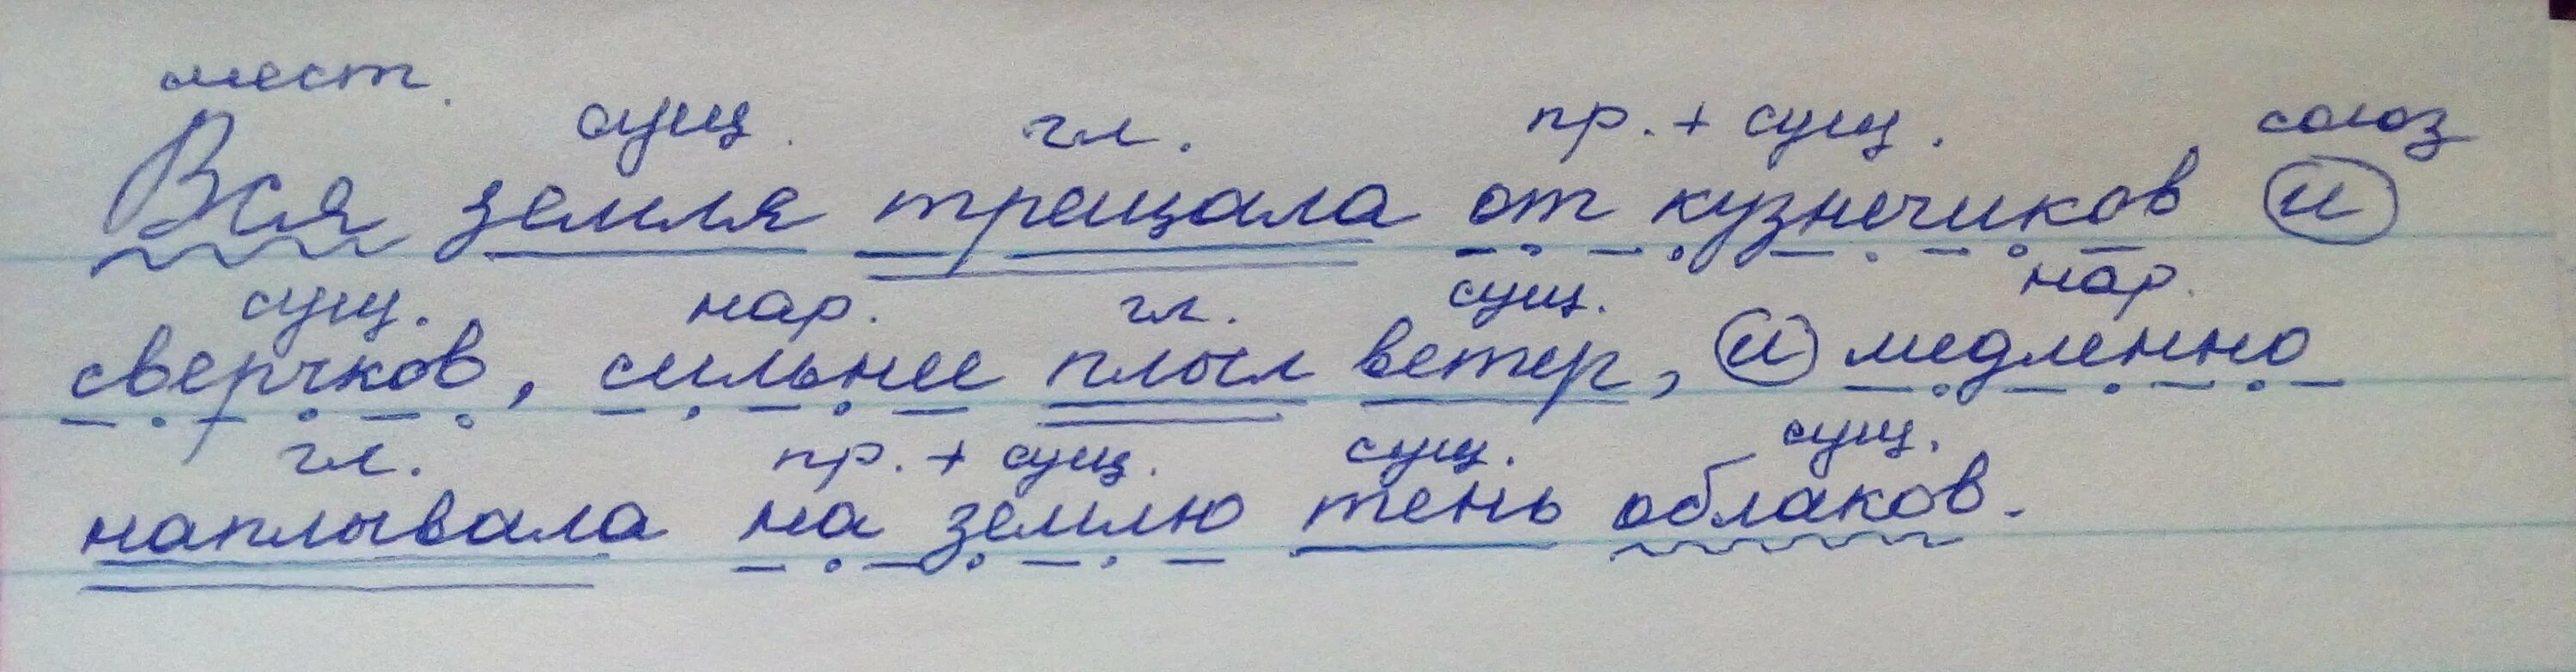 мест.
сущ. гл. пр. + сущ. союз
Вся земля трещала от кузнечиков и
сущ. нар. гл. сущ. нар.
сверчков, сильнее плыл ветер, и медленно
гл. пр. + сущ. сущ. сущ.
наплывала на землю тень облаков.